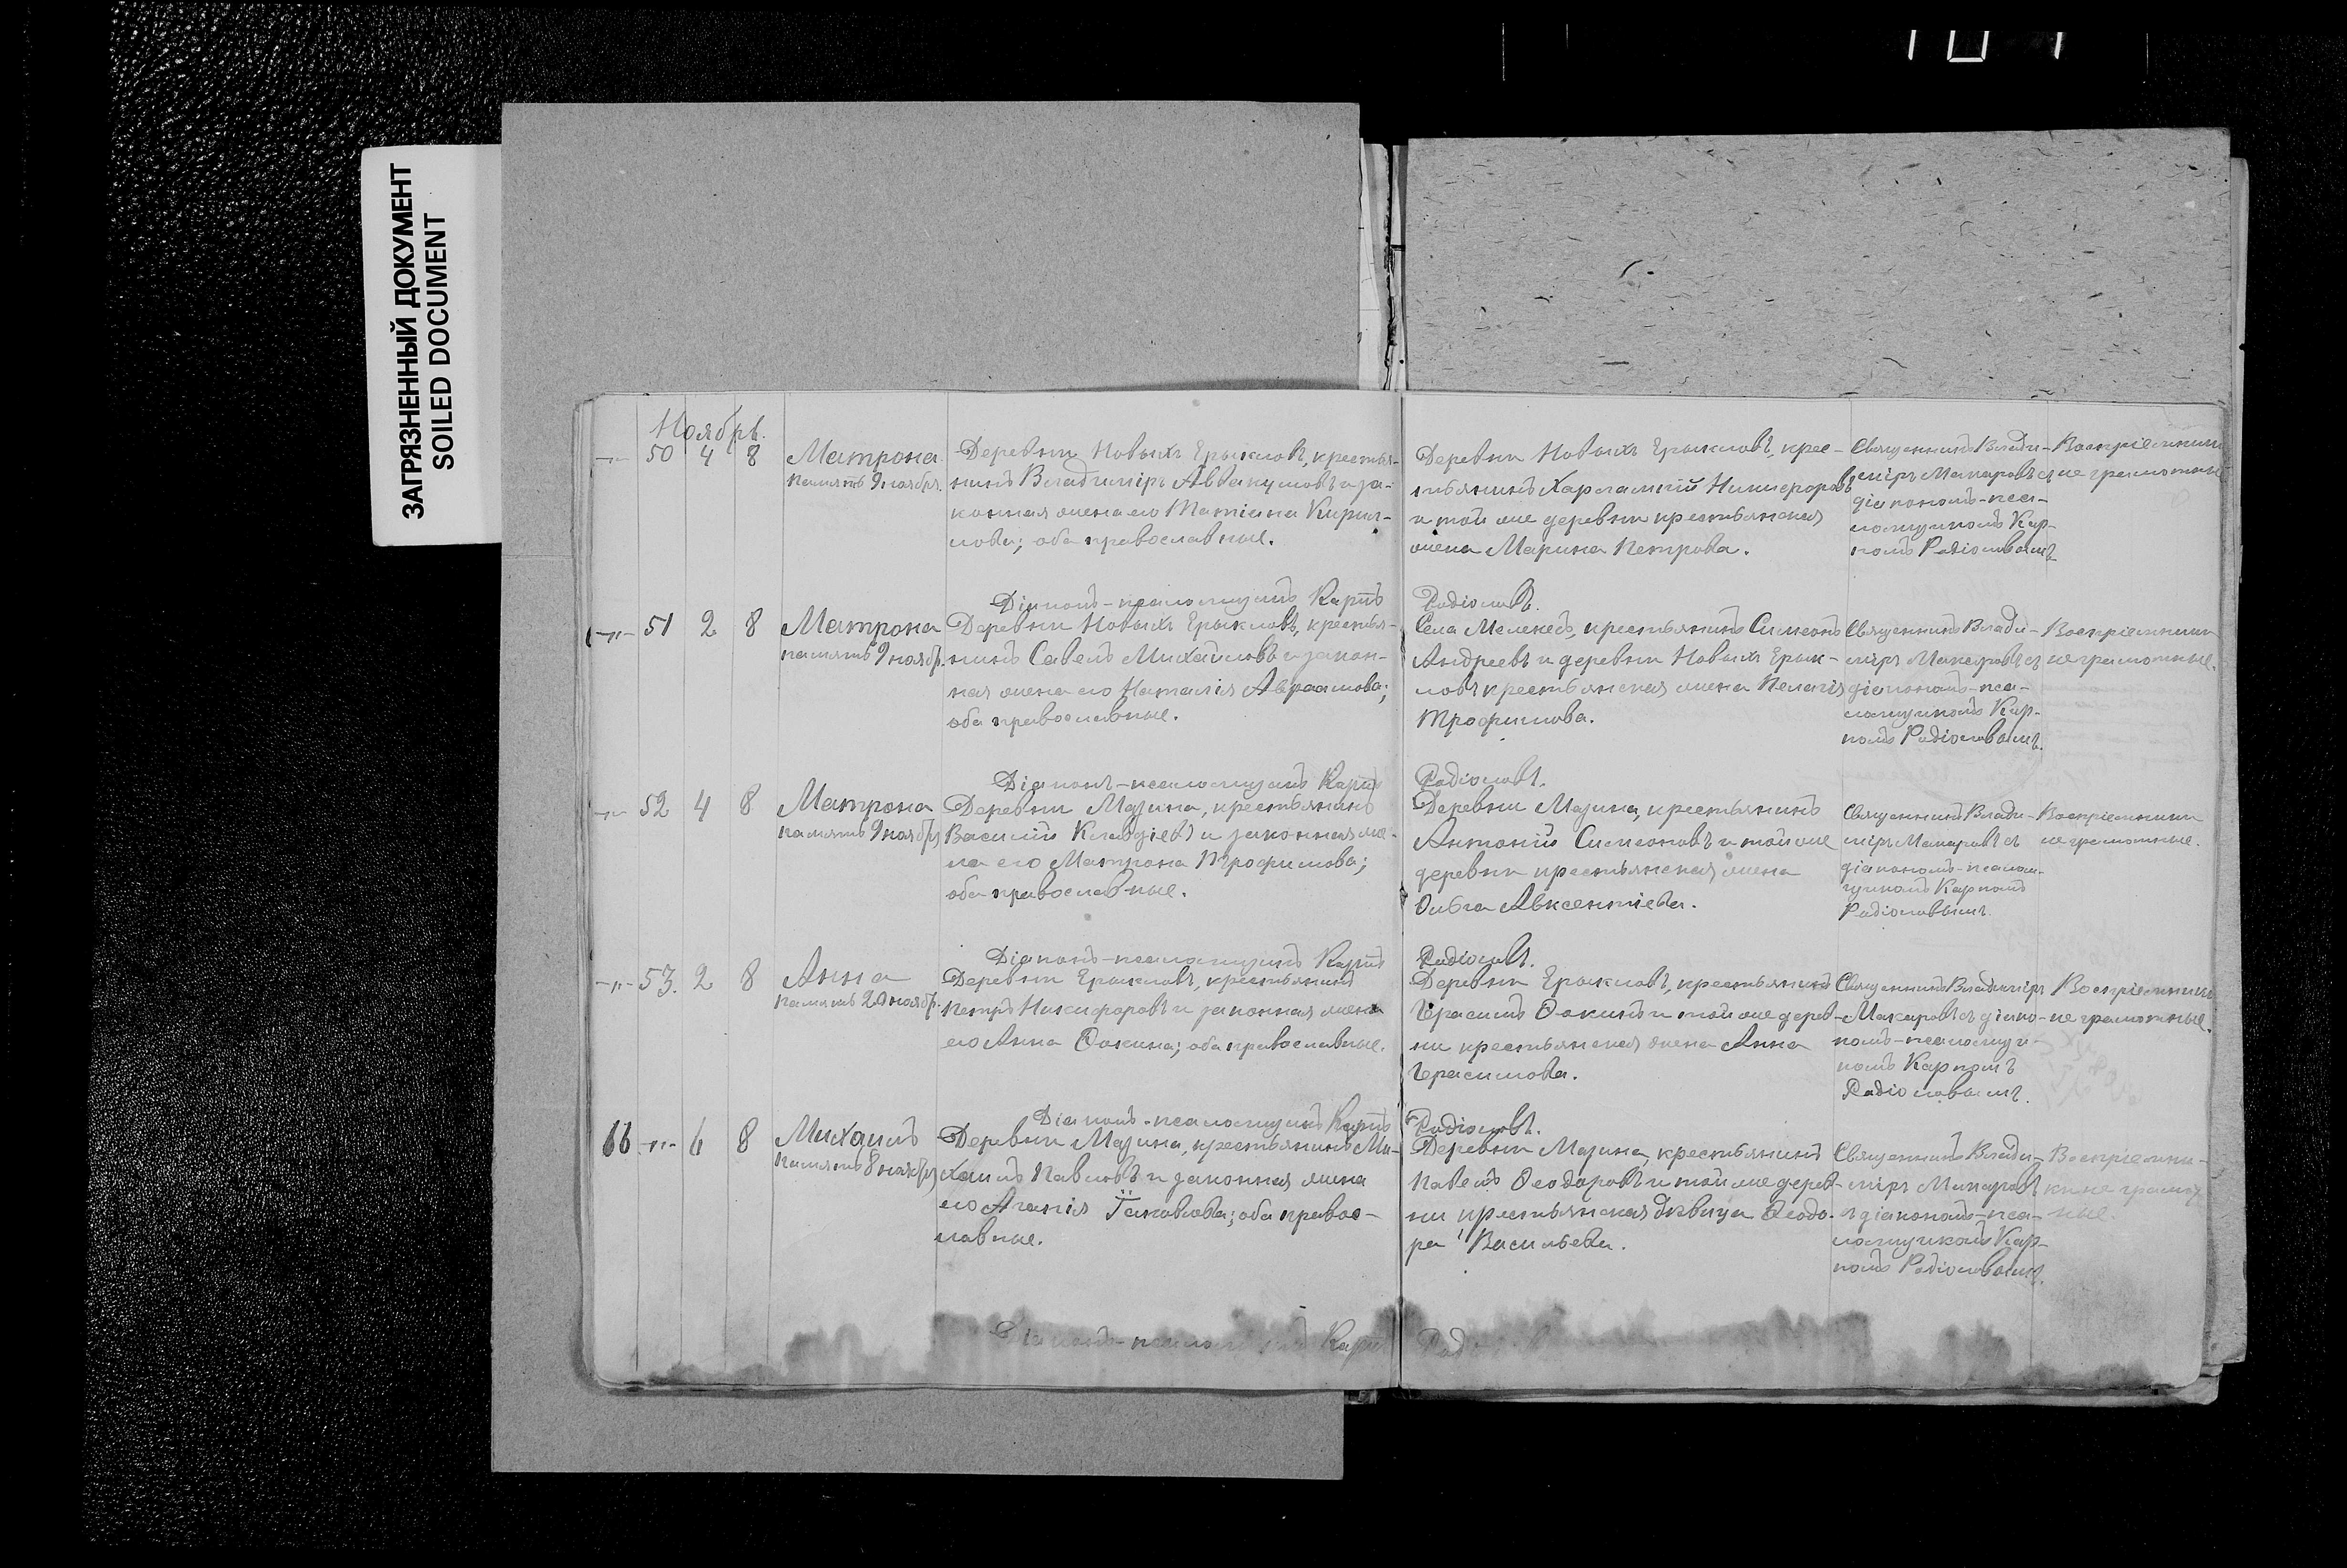 ЗАГРЯЗНЕННЫЙ ДОКУМЕНТ
SOILED DOCUMENT
Ноябрь.
-"- 50 4 8 Матрона
память 9 ноября.
Деревни Новыхъ Ерыкловъ, крестья-
нинъ Владимiръ Аввакумовъ и за-
конная жена его Татiана Кирил-
лова; оба православные.
Деревни Новыхъ Ерыкловъ, крес-
тьянинъ Харлампiй Никифоровъ
и той же деревни крестьянская
жена Марина Петрова.
Священникъ Влади-
мiръ Макаровъ съ
дiакономъ-пса-
ломщикомъ Кар-
помъ Радiоновымъ
Воспрiемники
не грамотные
Дiаконъ-псаломщикъ Карпъ Радiоновъ.
-"- 51 2 8 Матрона
память 9 ноябр.
Деревни Новыхъ Ерыкловъ, крестья-
нинъ Савелъ Михайловъ и закон-
ная жена его Наталiя Авраамова;
оба православные.
Села Мелекесъ, крестьянинъ Симеонъ
Андреевъ и деревни Новыхъ Ерык-
ловъ крестьянская жена Пелагiя
Трофимова.
Священникъ Влади-
мiръ Макаровъ съ
дiакономъ-пса-
ломщикомъ Кар-
помъ Радiоновымъ.
Воспрiемники
не грамотные.
Дiаконъ-псаломщикъ Карпъ Радiоновъ.
-"- 52 4 8 Матрона
память 9 ноября
Деревни Мазина, крестьянинъ
Василiй Клавдiевъ и законная же-
на его Матрона Трофимова;
оба православные.
Деревни Мазина, крестьянинъ
Антонiй Симеоновъ и той же
деревни крестьянская жена
Ольга Авксентiева.
Священникъ Влади-
мiръ Макаровъ съ
дiакономъ-псалом-
щикомъ Карпомъ
Радiоновымъ.
Воспрiемники
не грамотные.
Дiаконъ-псаломщикъ Карпъ Радiоновъ.
-"- 53. 2 8 Анна
память 20 ноябр.
Деревни Ерыкловъ, крестьянинъ
Петръ Никифоровъ и законная жена
его Анна Ѳокина; оба православные.
Деревни Ерыкловъ, крестьянинъ
Герасимъ Ѳокинъ и той же дерев-
ни крестьянская жена Анна
Герасимова.
Священникъ Владимiръ
Макаровъ съ дiако-
номъ-псаломщи-
комъ Карпомъ
Радiоновымъ.
Воспрiемники
не грамотные.
Дiаконъ-псаломщикъ Карпъ Радiоновъ.
66 -"- 6 8 Михаилъ
память 8 ноября
Деревни Мазина, крестьянинъ Ми-
хаилъ Павловъ и законная жена
его Агапiя Iаковлева; оба правос-
лавные.
Деревни Мазина, крестьянинъ
Павелъ Ѳеодоровъ и той же дерев-
ни крестьянская дѣвица Ѳеодо-
ра Васильева.
Священникъ Влади-
мiръ Макаровъ
съ дiакономъ-пса-
ломщикомъ Кар-
помъ Радiоновымъ.
Воспрiемни-
ки не грамот-
ные.
Дiаконъ-псаломщикъ Карпъ